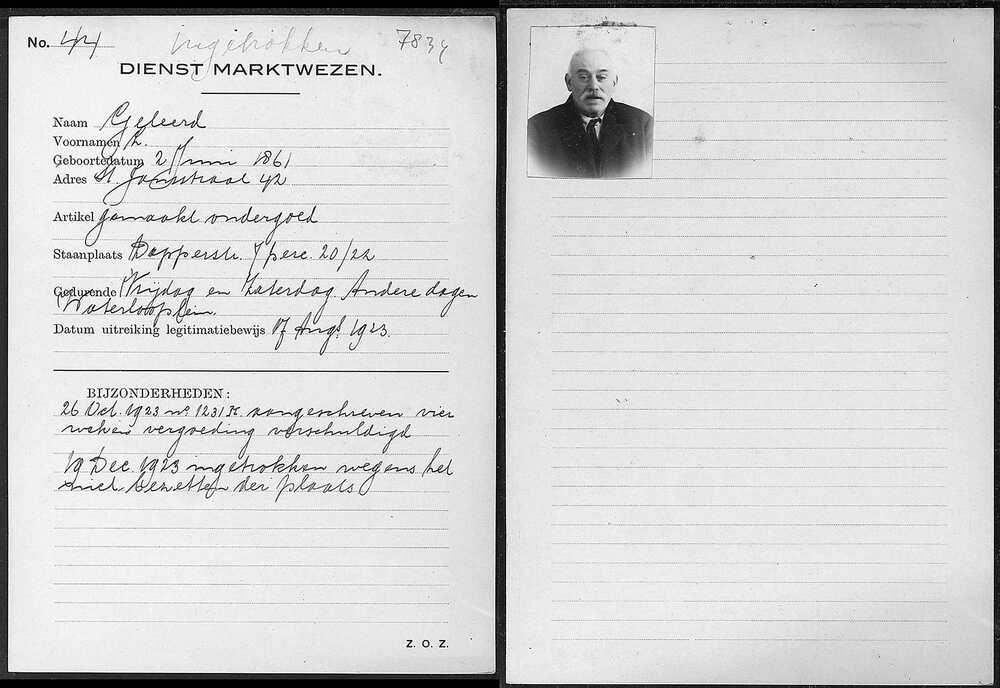 No. 44 Ingetrokken 7834
DIENST MARKTWEZEN.
Naam Geleerd
Voornamen L.
Geboortedatum 2 Juni 1861
Adres St. Jansstraat 42
Artikel gemaakt ondergoed
Staanplaats Dapperstr. 7 perc. 20/22
Gedurende Vrijdag en Zaterdag. Andere dagen
Waterlooplein.
Datum uitreiking legitimatiebewijs 17 Augs. 1923.
BIJZONDERHEDEN:
26 Oct. 1923 no. 1231 K. aangeschreven vier
weken vergoeding verschuldigd
19 Dec. 1923 ingetrokken wegens het
niet bezetten der plaats
Z. O. Z.